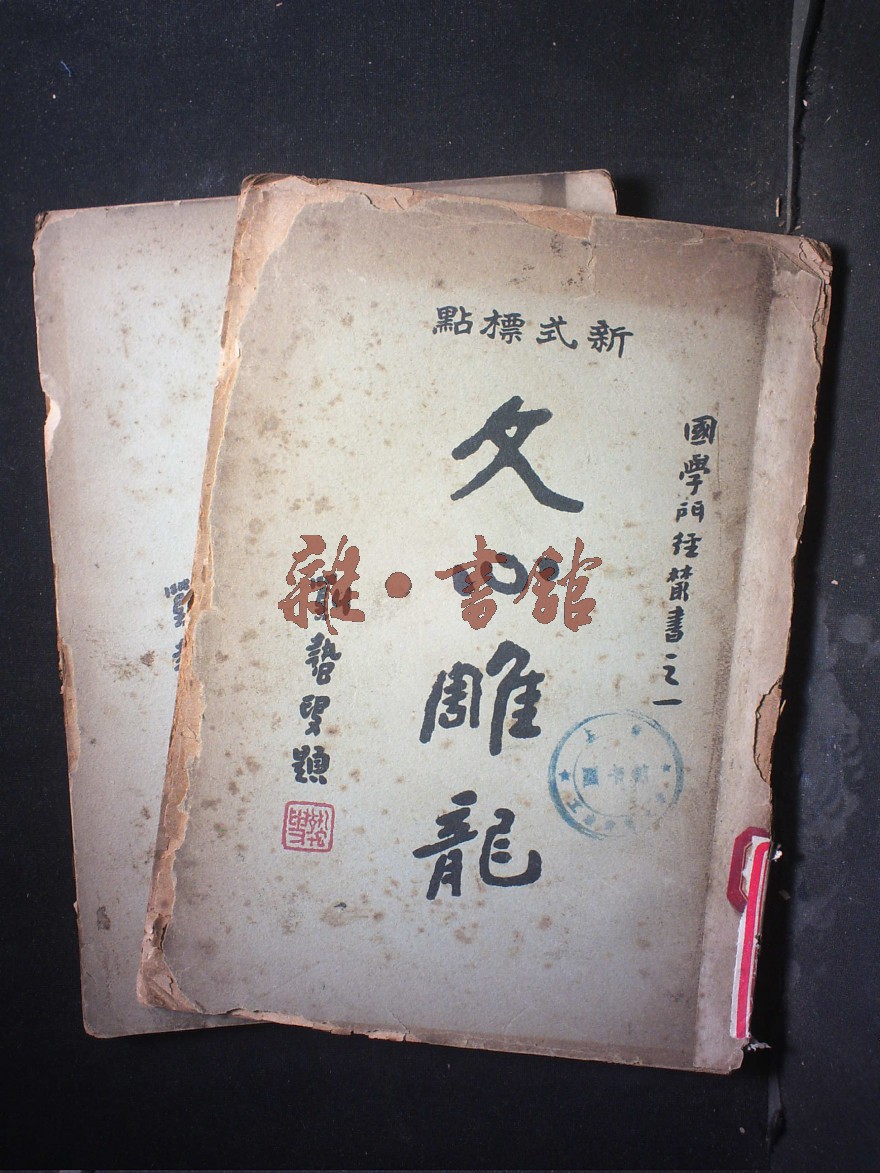 新式標點
國學門徑叢書之一
文心雕龍
蟄叟題
雜·書館